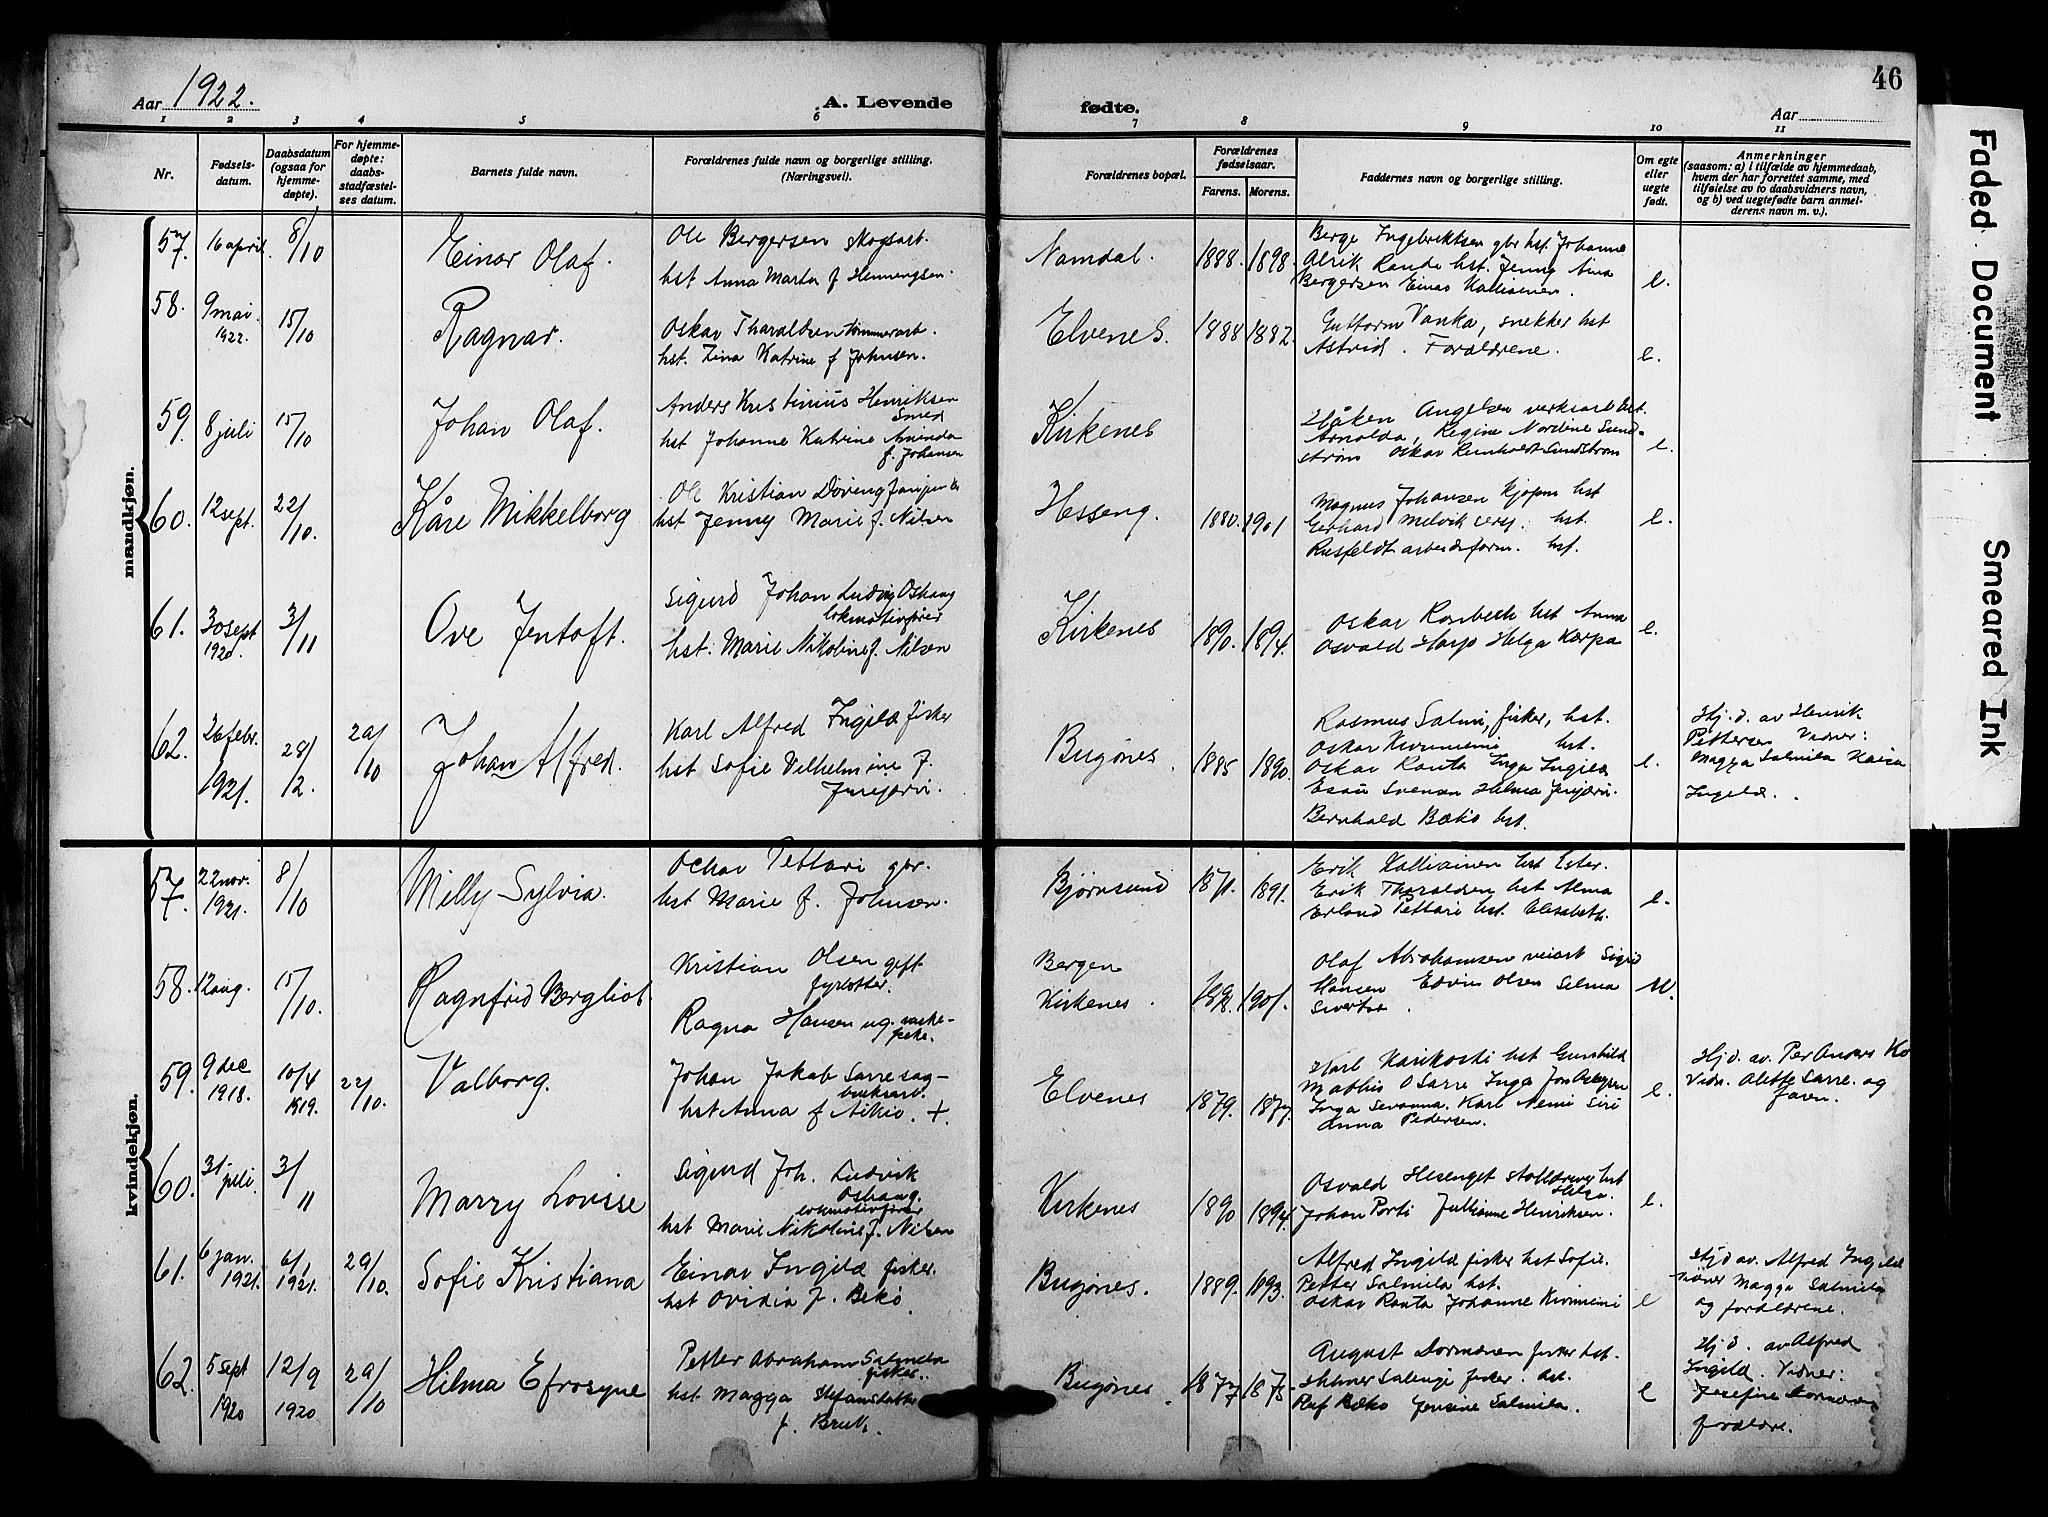 Aar 1922.
A. Levende
fødte.
Aar
46
1 2 3 4 5 6 7 8 9 10 11
Nr.
Fødsels-
datum.
Daabsdatum
(ogsaa for
hjemme-
døpte).
For hjemme-
døpte:
daabs-
stadfæstel-
ses datum.
Barnets fulde navn.
Forældrenes fulde navn og borgerlige stilling.
(Næringsvei).
Forældrenes bopæl.
Forældrenes
fødselsaar.
Farens. Morens.
Faddernes navn og borgerlige stilling.
Om egte
eller
uegte
født.
Anmerkninger
(saasom: a) i tilfælde av hjemmedaab,
hvem der har forrettet samme, med
tilføielse av to daabsvidners navn,
og b) ved uegtefødte barn anmel-
derens navn m. v.).
mandkjøn.
57. 16 april. 8/10 Einar Olaf.
Ole Bergersen
hst Anna Marta f Henningsen.
Namdal. 1888. 1898.
Berge Ingebrektsen gbr hst. Johanne
Alrik Rande hst. Jenny Aina
Bergersen Einar
e.
58. 9 mai 1922. 15/10 Ragnar.
Oskar Tharaldsen tømmerarb.
hst. Lina Katrine f Johnsen.
Elvenes. 1888 1882.
Guttorm Vanka, snekker hst
Astrid. Forældrene.
e.
59. 8 juli 15/10 Johan Olaf.
Anders Kristinius Henriksen
Smed
hst Johanne Katrine Amanda
f. Johansen
Kirkenes
Håken Angelsen verksarb hst.
Arnolda, Regine Nordine Sund-
strøm Oskar Reinholdt Sundstrøm
e.
60. 12 sept. 22/10. Kåre Mikkelborg
Ole Kristian Døving
hst Jenny Marie f. Nilsen
Hesseng. 1880. 1901
Magnus Johansen kjøpm hst
Gerhard Melvik hst.
Rusfeldt arbeidsform. hst.
e.
61. 30 sept 1920. 3/11 Ove Jentoft.
Sigurd Johan Ludvig Oshaug
lokomotivfører
hst. Marie Nikoline f. Nilsen
Kirkenes 1890. 1894.
Oskar hst Anna
Osvald Harp Helga Karpa
e.
62. 26 febr. 1921. 28/12. 29/10 Johan Alfred.
Karl Alfred Ingilæ fisker
hst Sofie Vilhelmine f.
Bugønes. 1885 1890.
Rasmus Salmi, fisker, hst.
Oskar hst.
Oskar Ranta Inga Ingilæ
Esau Svensen Hilma
Bernhald Bækø hst.
e.
Hj. d. av Henrik
Pettersen Vidner:
Magga Salmila Kaisa
Ingilæ.
kvindekjøn.
57. 22 nov. 1921. 8/10 Milly Sylvia.
Oskar Pettari gbr.
hst Marie f. Johnsen.
Bjørnsund 1871. 1891.
Erik Kalliainen hst Ester.
Erik Tharaldsen hst Alma
Erland Pettari hst. Elisabeth.
e.
58. 12 aug. 15/10. Ragnfrid Bergliot
Kristian Olsen gift
fyrbøter.
Ragna Hansen ug. vaske-
pike.
Bergen
Kirkenes. 1901.
Olaf Abrahamsen veiarb Sigrid
Hansen Edvin Olsen Selma
u.
59. 9 dec 1918. 10/4 1919. 22/10. Valborg.
Johan Jakob Sarre sag-
bruksarb.
hst Anna f Aikio. +
Elvenes 1879. 1877.
Karl Karikoski hst Gunhild
Mathis O Sarre Inga
Inga Karl Niemi Siri
Anna Pedersen.
e.
Hj d. av. Per Anders
Vidn. Alette Sarre. og
faren.
60. 31 juli. 3/11 Marry Lovisse
Sigurd Joh. Ludvik
Oshaug.
lokomotivfører
hst Marie Nikoline f. Nilsen
Kirkenes 1890 1894.
Osvald Hesenget hst
Helga.
Johan Porti Jullianne Henriksen.
e.
61. 6 jan. 1921. 6/1 1921. 29/10. Sofie Kristiana
Einar Ingilæ fisker.
hst Ovidia f. Bekø.
Bugønes. 1889. 1893.
Alfred Ingilæ fisker hst Sofie.
Petter Salmila hst.
Oskar Ranta Johanne
e
Hj d av. Alfred Ingilæ
vidner Magga Salmila
og forældrene.
62. 5 sept 1920 12/9 1920 29/10 Hilma Efrosyne
Petter Abraham Salmila
fisker.
hst Magga
f.
Bugønes. 1877 1875
August Dormænen fisker hst.
fisker. hst.
Bækø Jensine Salmila.
e
Hj d. av Alfred
Ingilæ. Vidner:
Josefine Dormænen
forældre.
Faded Document
Smeared Ink